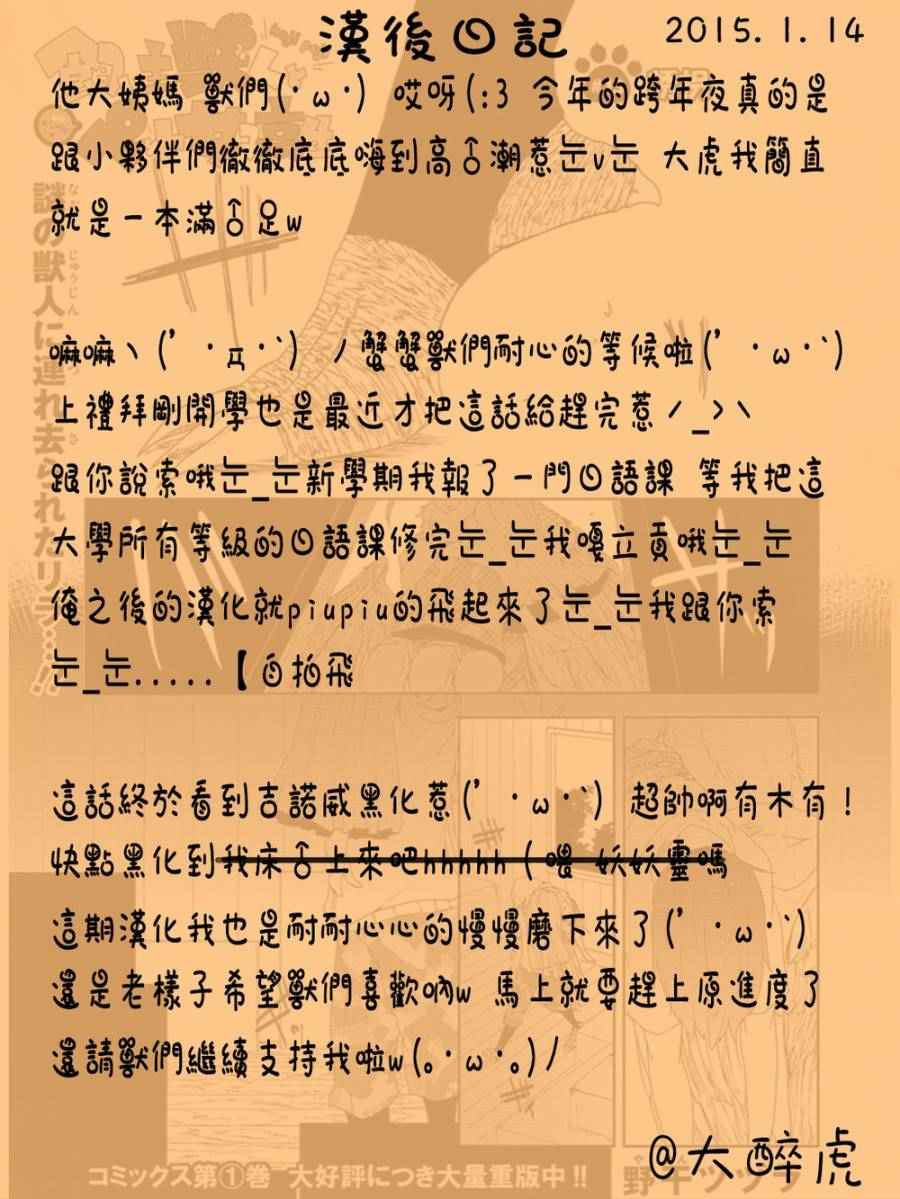 漢後日記
2015.1.14
他大姨媽 獸們(･ω･) 哎呀(:3 今年的跨年夜真的是
跟小夥伴們徹徹底底嗨到高♂潮惹눈v눈 大虎我簡直
就是一本滿♂足w
嘛嘛ヽ(′･д･‵)ノ蟹蟹獸們耐心的等候啦(′･ω･‵)
上禮拜剛開學也是最近才把這話給趕完惹ㄏ_>ㄟ
跟你說索哦눈_눈新學期我報了一門日語課 等我把這
大學所有等級的日語課修完눈_눈我嘎立貢哦눈_눈
俺之後的漢化就piupiu的飛起來了눈_눈我跟你索
눈_눈.....【自拍飛
這話終於看到吉諾威黑化惹(′･ω･‵) 超帥啊有木有！
快點黑化到我床♂上來吧hhhhh（喂 妖妖靈嗎
這期漢化我也是耐耐心心的慢慢磨下來了(′･ω･‵)
還是老樣子希望獸們喜歡吶w 馬上就要趕上原進度了
還請獸們繼續支持我啦w(｡･ω･｡)ﾉ
@大醉虎
謎の獣人に連れ去られたリ
コミックス第①巻 大好評につき大量重版中!!